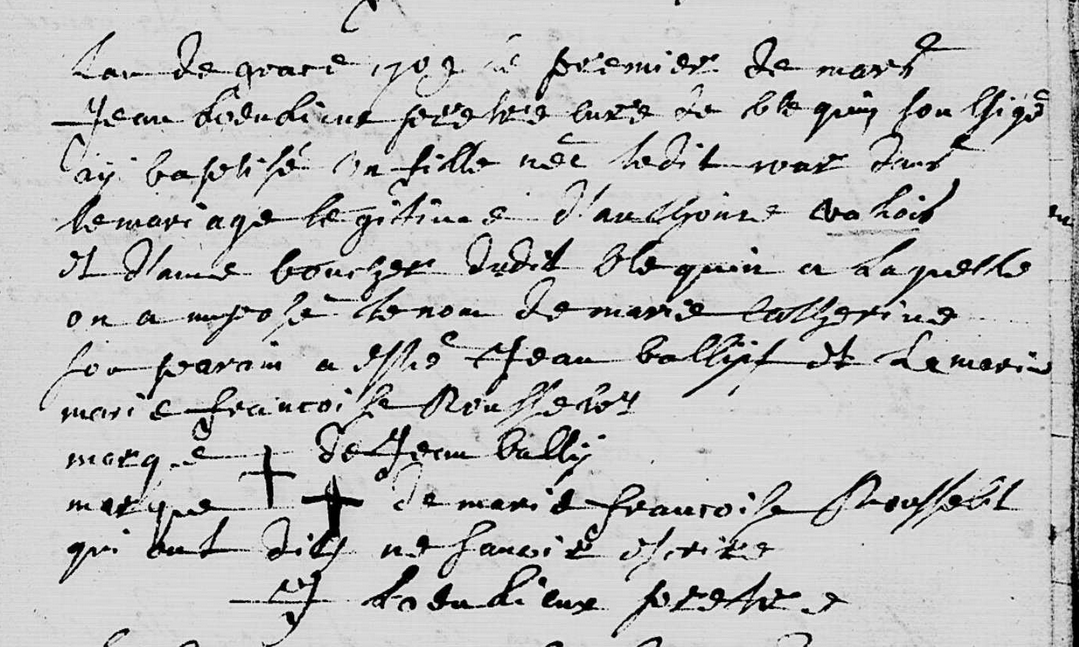 Lan de grace 1709 le premier de mars
Jean prestre curé de blequin soussigé
ay baptisé un fille neé ledit jour dans
le mariage legitime d'anthoine valois
et d'anne boucher dudit blequin a laquelle
on a imposé le nom de marie Catherine
son parain a esté Jean bally et La marine
marie francoise Rousselet
marque de Jean bally
marque de marie francoise Rousselet
qui ont dits ne sauoir escrire
J prestre